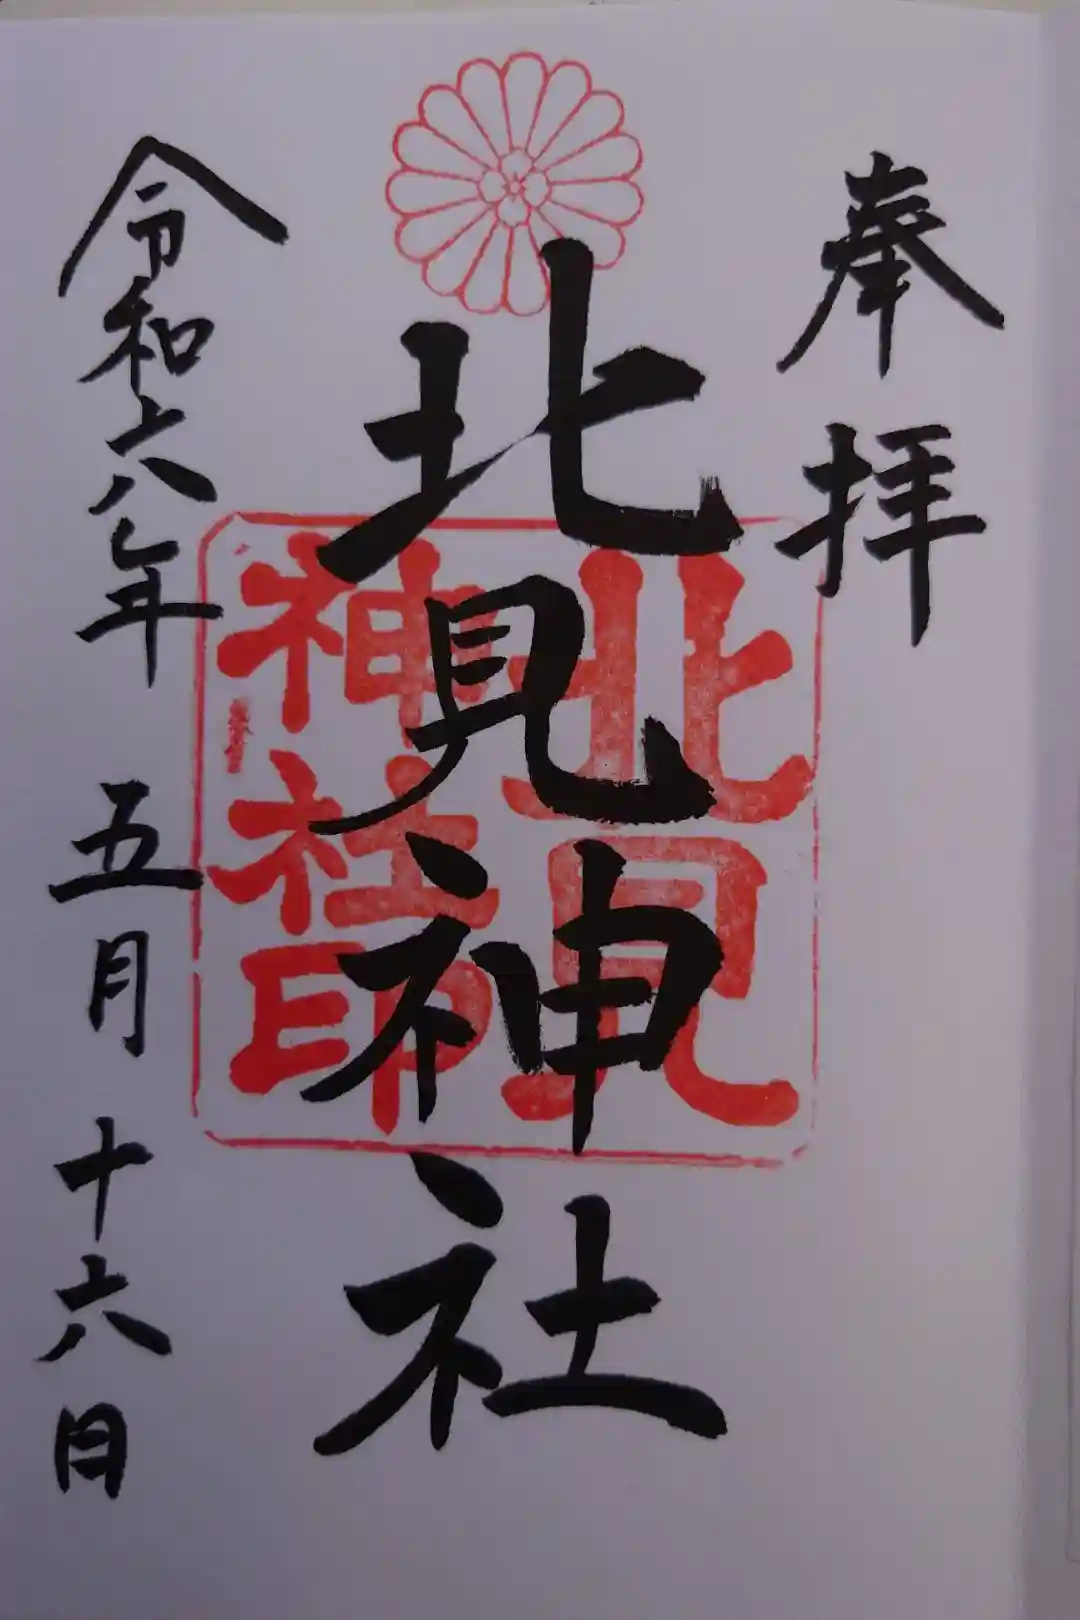 奉拝
北見神社
北見
神社印
令和六年
五月
十六日